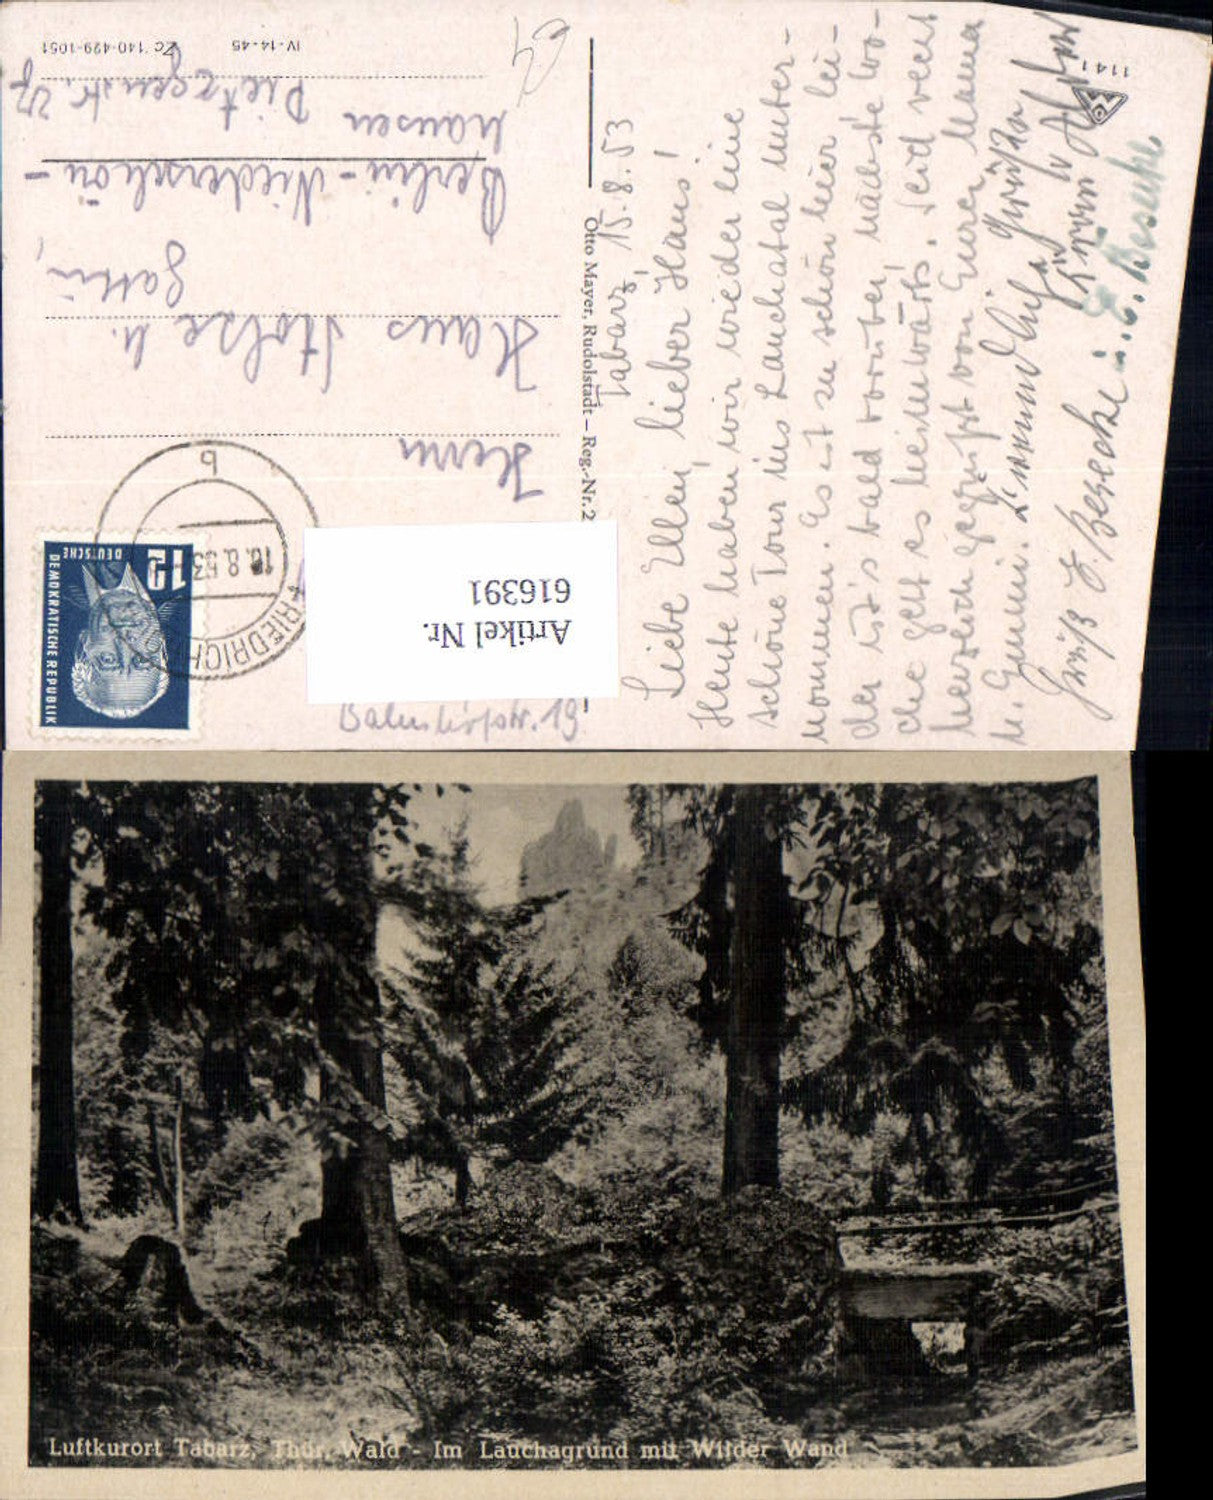 Tabarz, 15.8.53
Liebe Ellen, lieber Hans!
Heute haben wir wieder eine
schöne Tour ins Lauchatal unter-
nommen. Es ist zu schön hier lei-
der ist's bald vorüber, nächste Wo-
che geht es heimwärts. Seid recht
herzlich gegrüßt von Eurer Mama
u.
Grüße
Gruß E. Besecke
E. Besecke
1141
Otto Mayer, Rudolstadt – Reg.-Nr. 2
Herrn
Hans Stolze u.
Gattin,
Berlin-Niederschön-
hausen
Dietzgenstr. 27
IV-14-45 Zc 140-429-1051
12
DEUTSCHE
DEMOKRATISCHE REPUBLIK
FRIEDRICH
16.8.53
b
Artikel Nr.
616391
Bahnhofstr. 19
Luftkurort Tabarz, Thür. Wald - Im Lauchagrund mit Wilder Wand